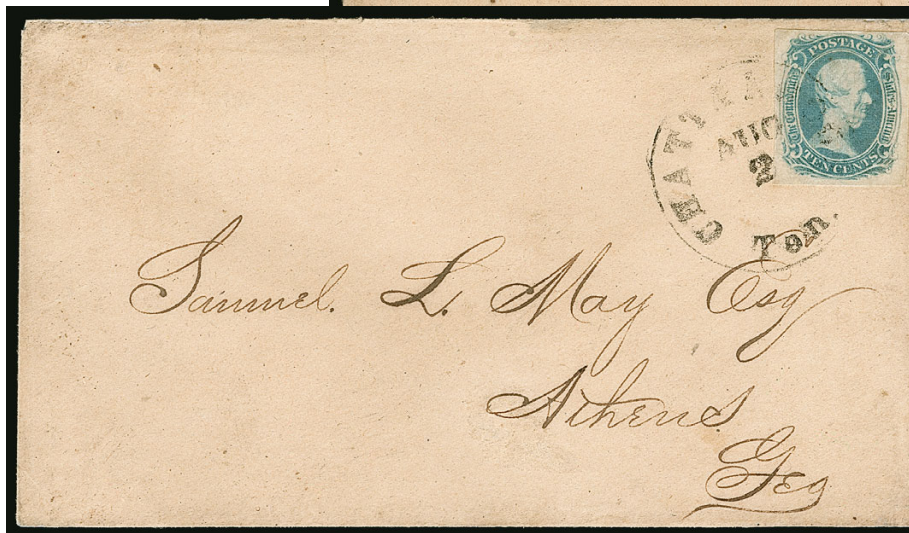 POSTAGE
The Confederate States of America
TEN CENTS
AUG
2
Ten.
Samuel. L. May Esq
Athens
Geo